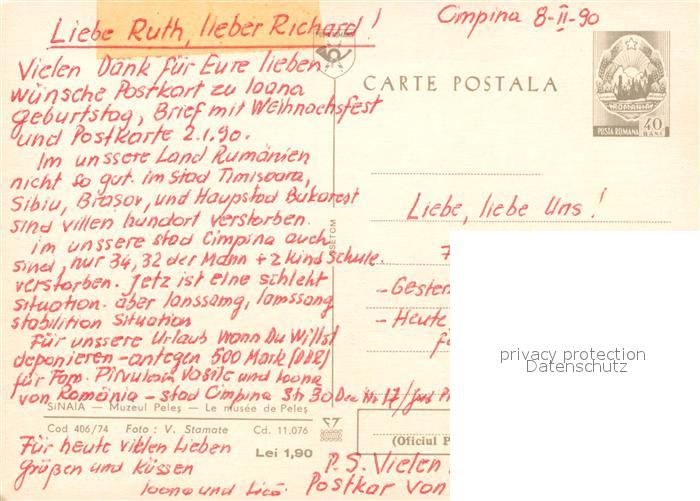 Liebe Ruth, lieber Richard!
Cimpina 8-II-90
Vielen Dank für Eure lieben
wünsche Postkart zu Ioana
geburtstag, Brief mit Weihnochsfest
und Postkarte 2.1.90.
Im unssere Land Rumänien
nicht so gut. im Stad Timisoara,
Sibiu, Brasov, und Haupstad Bukarest
sind villen hundort verstorben.
im unssere stad Cimpina auch
sind, nur 34, 32 der Mann + 2 kind Schule.
verstorben. Jetz ist eine schleht
situation. aber lanssamg, lamssang
stabilition situation
Für unssere Urlaub wann Du Willst
deponieren - antegen 500 Mark (DDR)
für Fam. Pîrvulescu Vasile und Ioana
von România - stad Cimpina Str 30 Dec Nr 17/
SINAIA — Muzeul Peleș — Le musée de Peleș
Cod 406/74 Foto: V. Stamate Cd. 11.076
Lei 1,90
Für heute vielen Lieben
größen und küssen
Ioana und
CARTE POSTALA
ROMANIA
POSTA ROMANA 40 BANI
Liebe, liebe Uns!
- Gester
- Heute
(Oficiul P
P.S. Vielen
Postkar von
privacy protection
Datenschutz